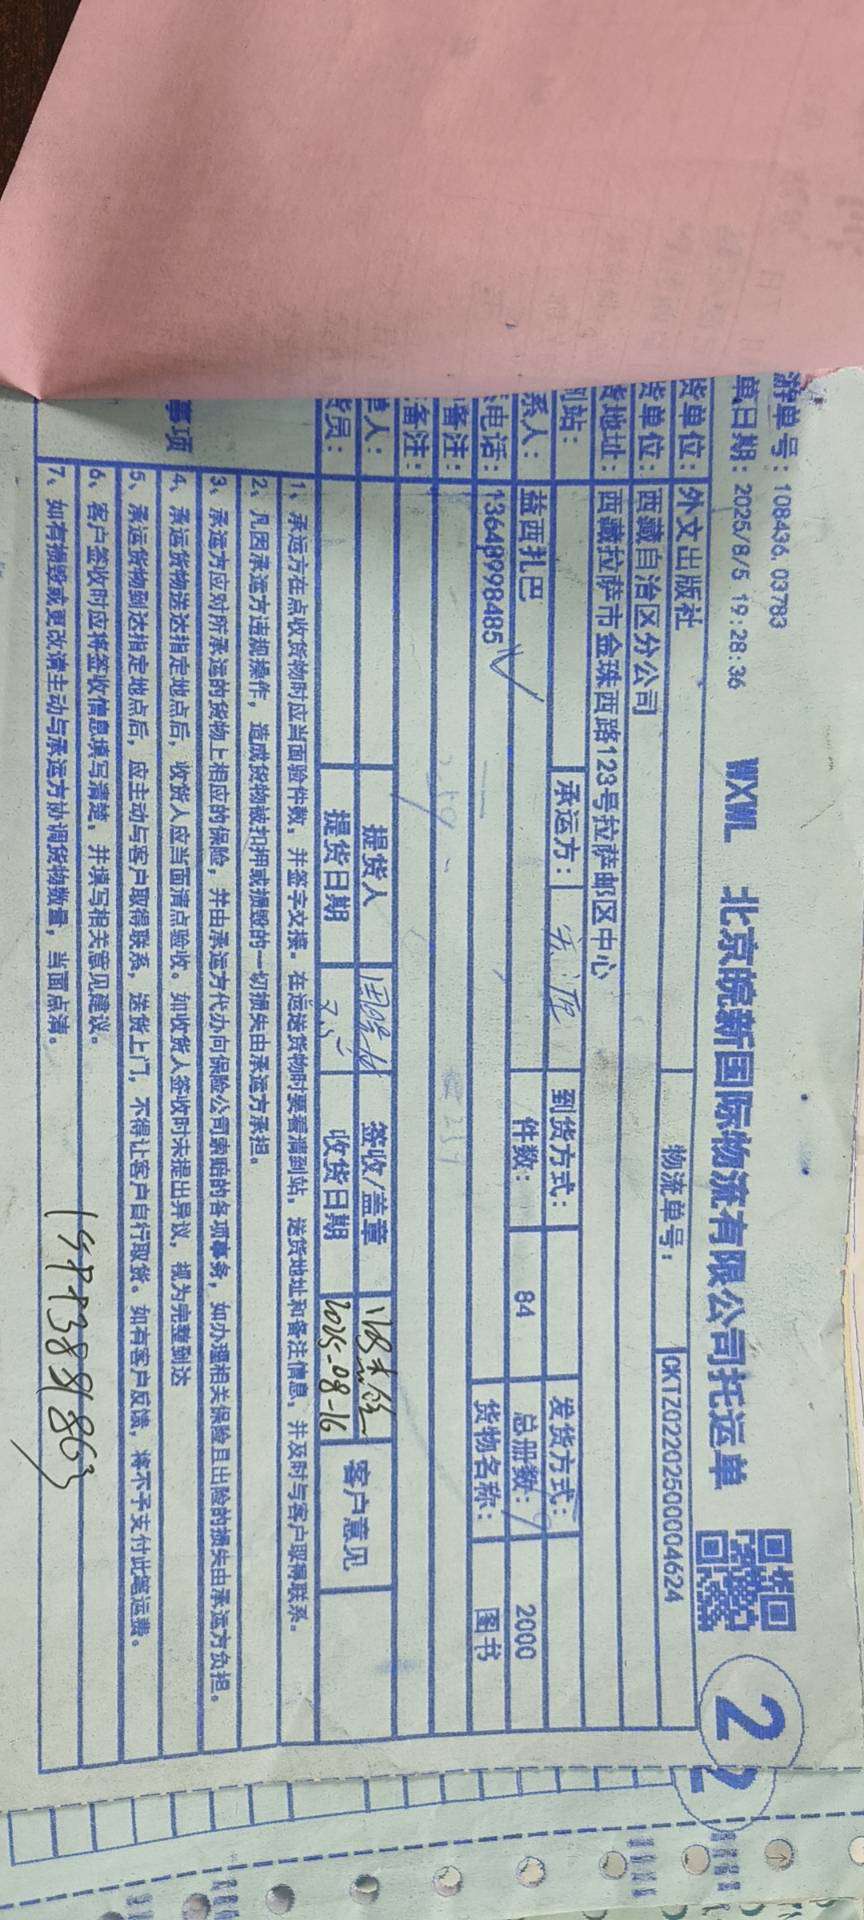 游单号：108436.03783
单日期：2025/8/5 19:28:36
WXWL 北京皖新国际物流有限公司托运单
2
货单位：外文出版社
物流单号：
CKTZ02202500004624
货单位：西藏自治区分公司
货地址：西藏拉萨市金珠西路123号拉萨邮区中心
到站：
承运方：
到货方式：
发货方式：
系人：益西扎巴
件数：84
总册数：2000
电话：13648998485
货物名称：图书
备注：
备注：
提货人
签收/盖章
客户意见
货员：
提货日期
7.5
收货日期
2025-08-16
事项
1、承运方在点收货物时应当面验件数，并签字交接。在运送货物时要看清到站，送货地址和备注信息，并及时与客户取得联系。
2、凡因承运方违规操作，造成货物被扣押或损毁的一切损失由承运方承担。
3、承运方应对所承运的货物上相应的保险，并由承运方代办向保险公司索赔的各项事务，如办理相关保险且出险的损失由承运方负担。
4、承运货物送达指定地点后，收货人应当面清点验收。如收货人签收时未提出异议，视为完整到达
5、承运货物到达指定地点后，应主动与客户取得联系，送货上门，不得让客户自行取货。如有客户反馈，将不予支付此笔运费。
6、客户签收时应将签收信息填写清楚，并填写相关意见建议。
7、如有损毁或更改请主动与承运方协调货物数量，当面点清。